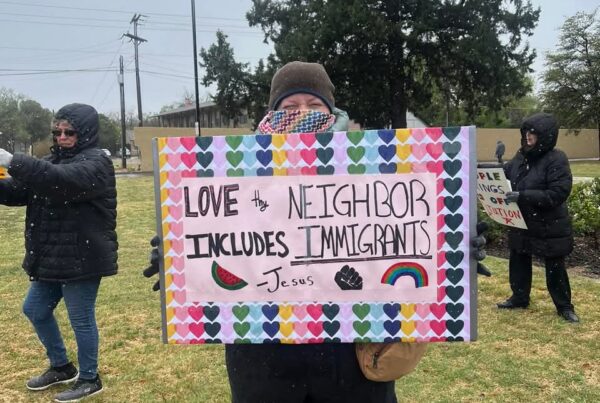 LOVE thy NEIGHBOR
INCLUDES IMMIGRANTS
-Jesus
OFF